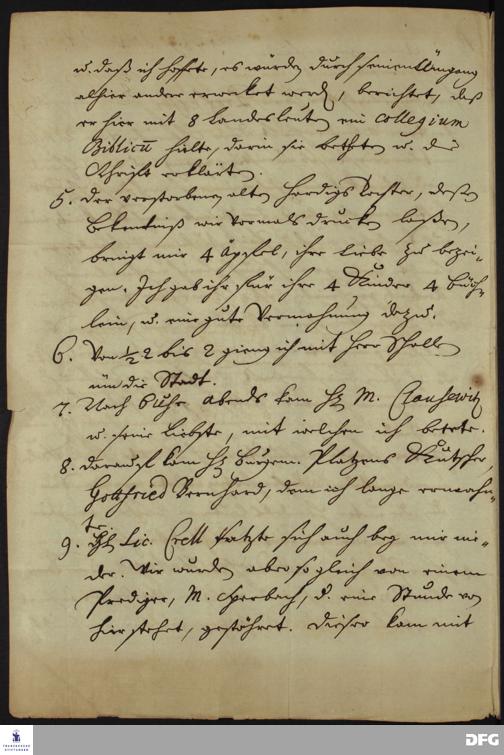 u. daß ich hoffete, es würden durch seinen Umgang
alhier andere erwecket werden, berichtet, daß
er hier mit 8 Landesleuten ein Collegium
Biblicum halte, darin sie betheten u. die
Schrift erklärten.
5. Der verstorbenen alten Hardigs Tochter, deßen
Bekentniß wir vormals drucken laßen,
bringt mir 4 Äpffel, ihre Liebe zu bezei-
gen. Ich gab ihr für ihre 4 Kinder 4 Büch-
lein, u. eine gute Vermahnung dazu.
6. Von ½2 bis 2 gieng ich mit Herr Scholl
um die Stadt.
7. Nach 6 Uhr abends kam H. M.
u. seine Liebste, mit welchen ich betete.
8. Darauf kam H. Bürgem. Platzens Kutscher,
Gottfried Bernhard, dem ich lange ermahn-
te.
9. H. Lic. Crell setzte sich auch bey mir nie-
der. Wir wurden aber sogleich von einem
Prediger, M. d. eine Stunde von
hier stehet, gestöhret. Dieser kam mit
FRANCKESCHE STIFTUNGEN
DFG